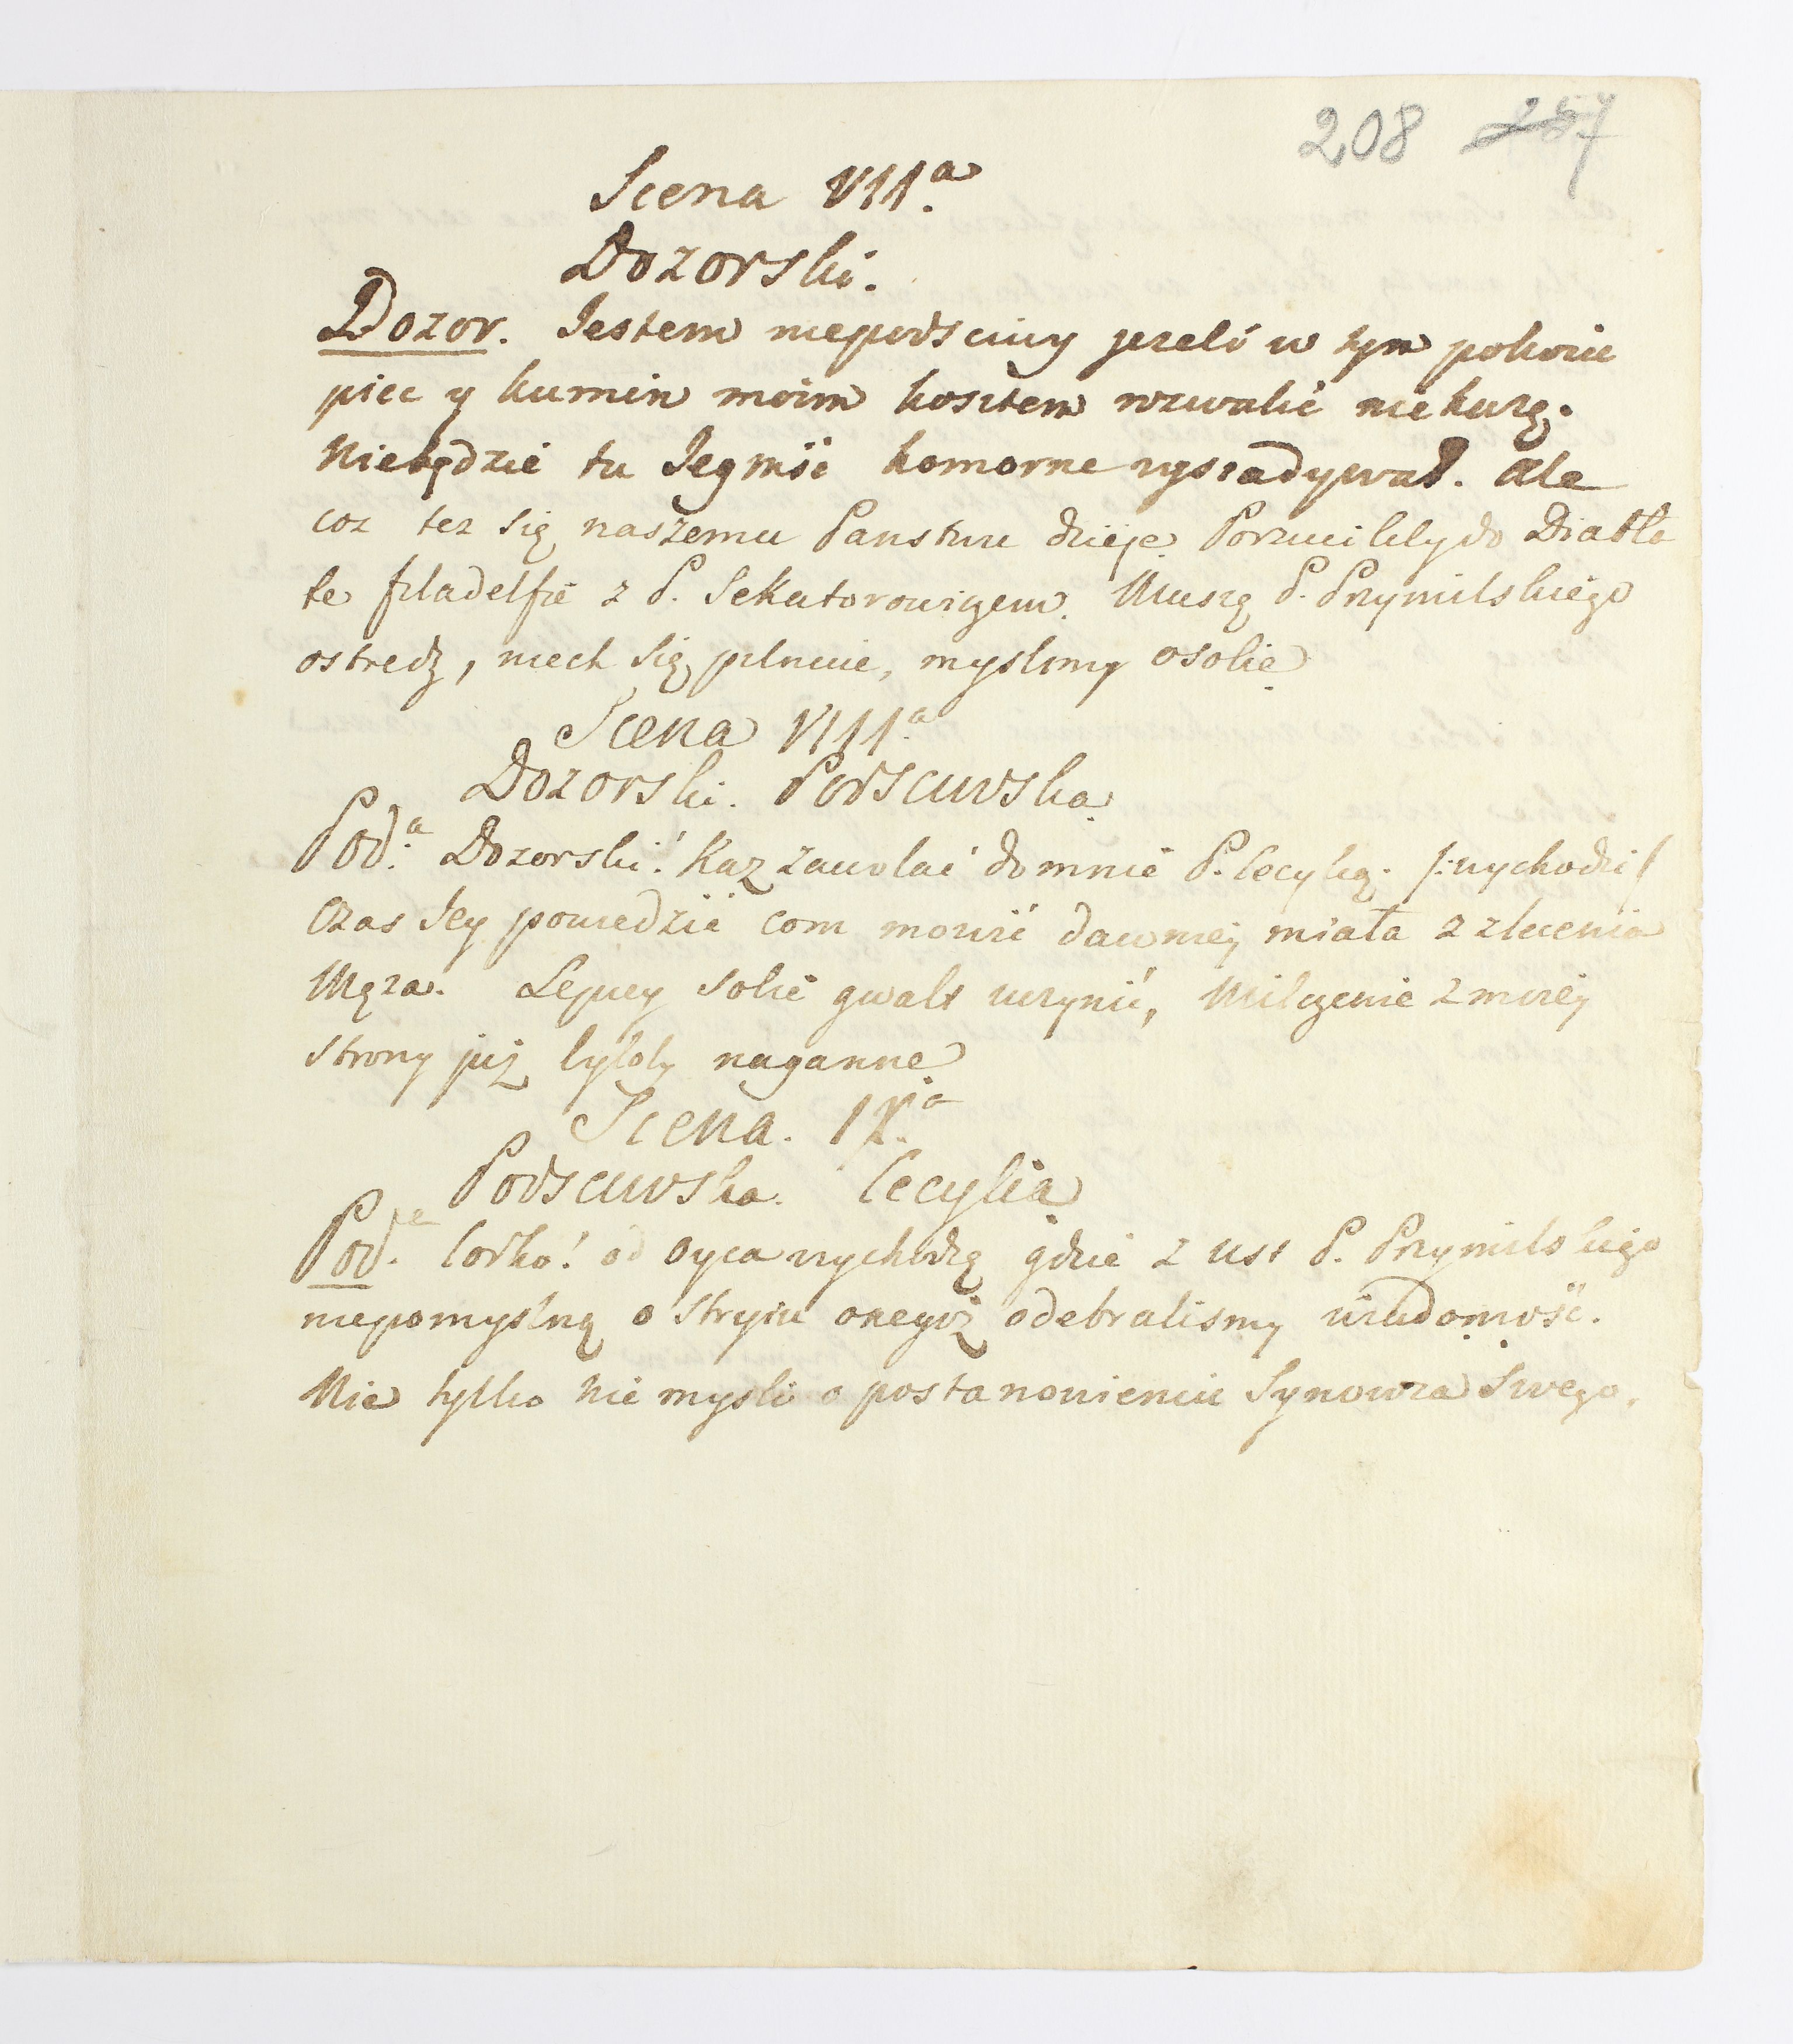 208 257
Scena VIIª.
Dozorski.
Dozor. Jestem niepodsciwy jezeli w tym pokoiu
piec y kumin moim kosztem rozwalić niekarzę.
Niebędzie tu Jegmść komorne wysiadywał. Ale
coz tez się naszemu Panstwu dzieje. Porzucililyby do Diabła
te filadelfie z P. Sekutorowiczem. Muszę P. Przymilskiego
ostredz, niech się pilnuie, myslimy osobie
Scena VIIIª.
Dozorski. Podsciwska.
Pod.ª Dozorski! Kaz zawolać do mnie P. Cecylię. /:wychodzi/
Czas Jey powiedzić com mowić dawniej miała z zlecenia
Męza. Lepiey sobie gwalt uczynić, Milczenie z moiej
strony już byloby naganne
Scena. IX.ª
Podsciwska. Cecylia
Pod. Corko! od Oyca wychodzę gdzie z ust P. Przymilskiego
niepomyslną o Stryiu onegdż odebralismy wiadomość.
Nie tylko nie mysli o postanowieniu Synowca Swego.